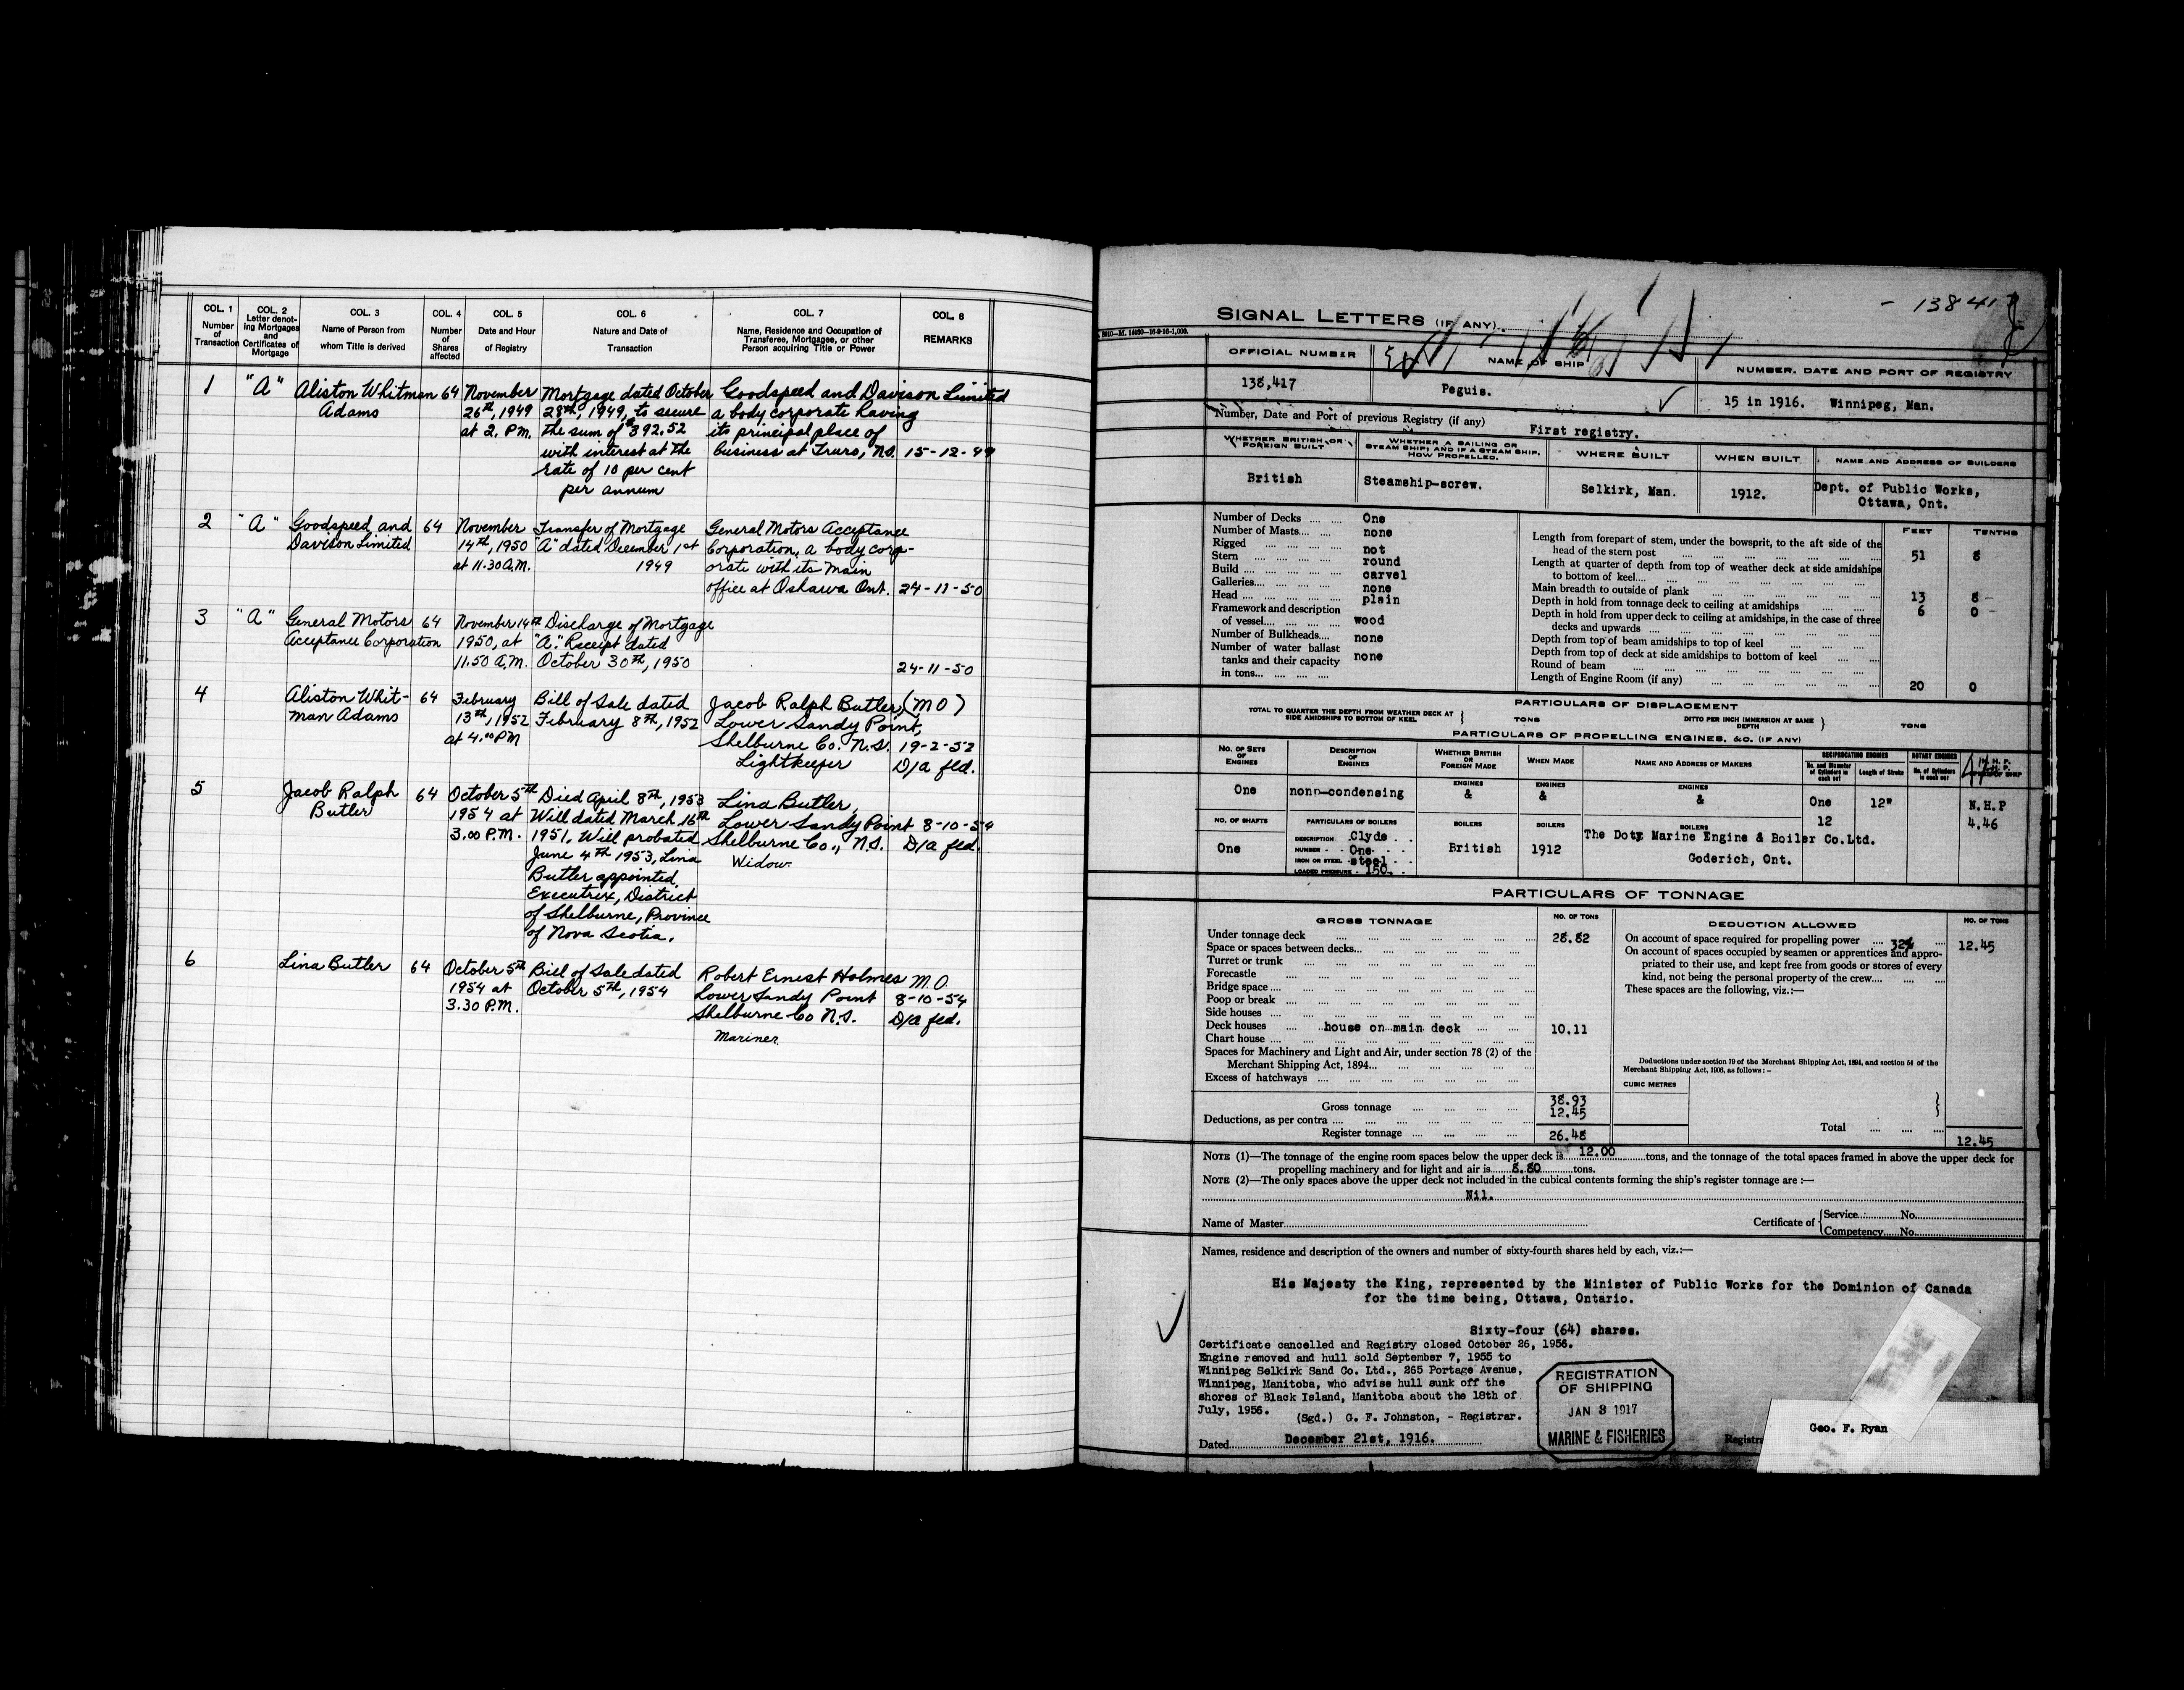 COL. 1
Number
of
Transaction
COL. 2
Letter denot-
ing Mortgages
and
Certificates of
Mortgage
COL. 3
Name of Person from
whom Title is derived
COL. 4
Number
of
Shares
affected
COL. 5
Date and Hour
of Registry
COL. 6
Nature and Date of
Transaction
COL. 7
Name, Residence and Occupation of
Transferee, Mortgagee, or other
Person acquiring Title or Power
COL. 8
REMARKS
1 "A" Aliston Whitman 64 November Mortgage dated October Goodspeed and Davison Limited
Adams 26th, 1949 28th, 1949, to secure a body corporate having
at 2. P.M. the sum of $392.52 its principal place of
with interest at the business at Truro, N.S. 15-12-49
rate of 10 per cent
per annum
2 "A" Goodspeed and 64 November Transfer of Mortgage General Motors Acceptance
Davison Limited 14th, 1950 "A" dated December 1st Corporation, a body corp-
at 11.30 A.M. 1949 orate with its main
office at Oshawa Ont. 24-11-50
3 "A" General Motors 64 November 14th Discharge of Mortgage
Acceptance Corporation 1950, at "A". Receipt dated
11.50 A.M. October 30th, 1950
24-11-50
4 Aliston Whit- 64 February Bill of Sale dated Jacob Ralph Butler, (M O)
man Adams 13th, 1952 February 8th, 1952 Lower Sandy Point,
at 4.00 PM Shelburne Co. N.S. 19-2-52
Lightkeeper D/a fld.
5 Jacob Ralph 64 October 5th Died April 8th, 1953 Lina Butler,
Butler 1954 at Will dated March 16th Lower Sandy Point 8-10-54
3.00 P.M. 1951, Will probated Shelburne Co., N.S. D/a fld.
June 4th 1953, Lina Widow.
Butler appointed
Executrix, District
of Shelburne, Province
of Nova Scotia.
6 Lina Butler 64 October 5th Bill of Sale dated Robert Ernest Holmes M.O.
1954 at October 5th, 1954 Lower Sandy Point 8-10-54
3.30 P.M. Shelburne Co N.S. D/a fld.
Mariner.
- 138417
SIGNAL LETTERS (IF ANY)
OFFICIAL NUMBER
NAME OF SHIP
NUMBER, DATE AND PORT OF REGISTRY
138,417
Peguis.
15 in 1916. Winnipeg, Man.
Number, Date and Port of previous Registry (if any)
First registry.
WHETHER BRITISH OR
FOREIGN BUILT
WHETHER A SAILING OR
STEAM SHIP; AND IF A STEAM SHIP,
HOW PROPELLED.
WHERE BUILT
WHEN BUILT
NAME AND ADDRESS OF BUILDERS
British
Steamship-screw.
Selkirk, Man.
1912.
Dept. of Public Works,
Ottawa, Ont.
Number of Decks One
Number of Masts none
Rigged not
Stern round
Build carvel
Galleries none
Head plain
Framework and description
of vessel wood
Number of Bulkheads none
Number of water ballast
tanks and their capacity none
in tons
FEET TENTHS
Length from forepart of stem, under the bowsprit, to the aft side of the
head of the stern post 51 8
Length at quarter of depth from top of weather deck at side amidships
to bottom of keel
Main breadth to outside of plank 13 8
Depth in hold from tonnage deck to ceiling at amidships 6 0
Depth in hold from upper deck to ceiling at amidships, in the case of three
decks and upwards
Depth from top of beam amidships to top of keel
Depth from top of deck at side amidships to bottom of keel
Round of beam
Length of Engine Room (if any) 20 0
PARTICULARS OF DISPLACEMENT
TOTAL TO QUARTER THE DEPTH FROM WEATHER DECK AT
SIDE AMIDSHIPS TO BOTTOM OF KEEL
TONS
DITTO PER INCH IMMERSION AT SAME
DEPTH
TONS
PARTICULARS OF PROPELLING ENGINES, &c. (IF ANY)
NO. OF SETS
OF
ENGINES
DESCRIPTION
OF
ENGINES
WHETHER BRITISH
OR
FOREIGN MADE
WHEN MADE
NAME AND ADDRESS OF MAKERS
RECIPROCATING ENGINES
No. and Diameter
of Cylinders in
each set
Length of Stroke
ROTARY ENGINES
No. of Cylinders
in each set
One
non-condensing
ENGINES
&
ENGINES
&
ENGINES
&
One
12
12"
N.H.P
4.46
NO. OF SHAFTS
PARTICULARS OF BOILERS
BOILERS
BOILERS
BOILERS
One
DESCRIPTION Clyde
NUMBER One
IRON OR STEEL steel
LOADED PRESSURE 150.
British
1912
The Doty Marine Engine & Boiler Co.Ltd.
Goderich, Ont.
PARTICULARS OF TONNAGE
GROSS TONNAGE
NO. OF TONS
Under tonnage deck 28.82
Space or spaces between decks
Turret or trunk
Forecastle
Bridge space
Poop or break
Side houses
Deck houses house on main deck 10.11
Chart house
Spaces for Machinery and Light and Air, under section 78 (2) of the
Merchant Shipping Act, 1894
Excess of hatchways
Gross tonnage 38.93
Deductions, as per contra 12.45
Register tonnage 26.48
DEDUCTION ALLOWED
NO. OF TONS
On account of space required for propelling power 32% 12.45
On account of spaces occupied by seamen or apprentices and appro-
priated to their use, and kept free from goods or stores of every
kind, not being the personal property of the crew
These spaces are the following, viz.:—
Deductions under section 79 of the Merchant Shipping Act, 1894, and section 54 of the
Merchant Shipping Act, 1906, as follows:—
CUBIC METRES
Total 12.45
NOTE (1)—The tonnage of the engine room spaces below the upper deck is 12.00 tons, and the tonnage of the total spaces framed in above the upper deck for
propelling machinery and for light and air is 8.80 tons.
NOTE (2)—The only spaces above the upper deck not included in the cubical contents forming the ship's register tonnage are :—
Nil.
Name of Master
Certificate of Service No.
Competency No.
Names, residence and description of the owners and number of sixty-fourth shares held by each, viz.:—
His Majesty the King, represented by the Minister of Public Works for the Dominion of Canada
for the time being, Ottawa, Ontario.
Sixty-four (64) shares.
Certificate cancelled and Registry closed October 26, 1956.
Engine removed and hull sold September 7, 1955 to
Winnipeg Selkirk Sand Co. Ltd., 265 Portage Avenue,
Winnipeg, Manitoba, who advise hull sunk off the
shores of Black Island, Manitoba about the 18th of
July, 1956.
(Sgd.) G. F. Johnston, - Registrar.
REGISTRATION
OF SHIPPING
JAN 8 1917
MARINE & FISHERIES
Dated December 21st, 1916.
Registr
Geo. F. Ryan